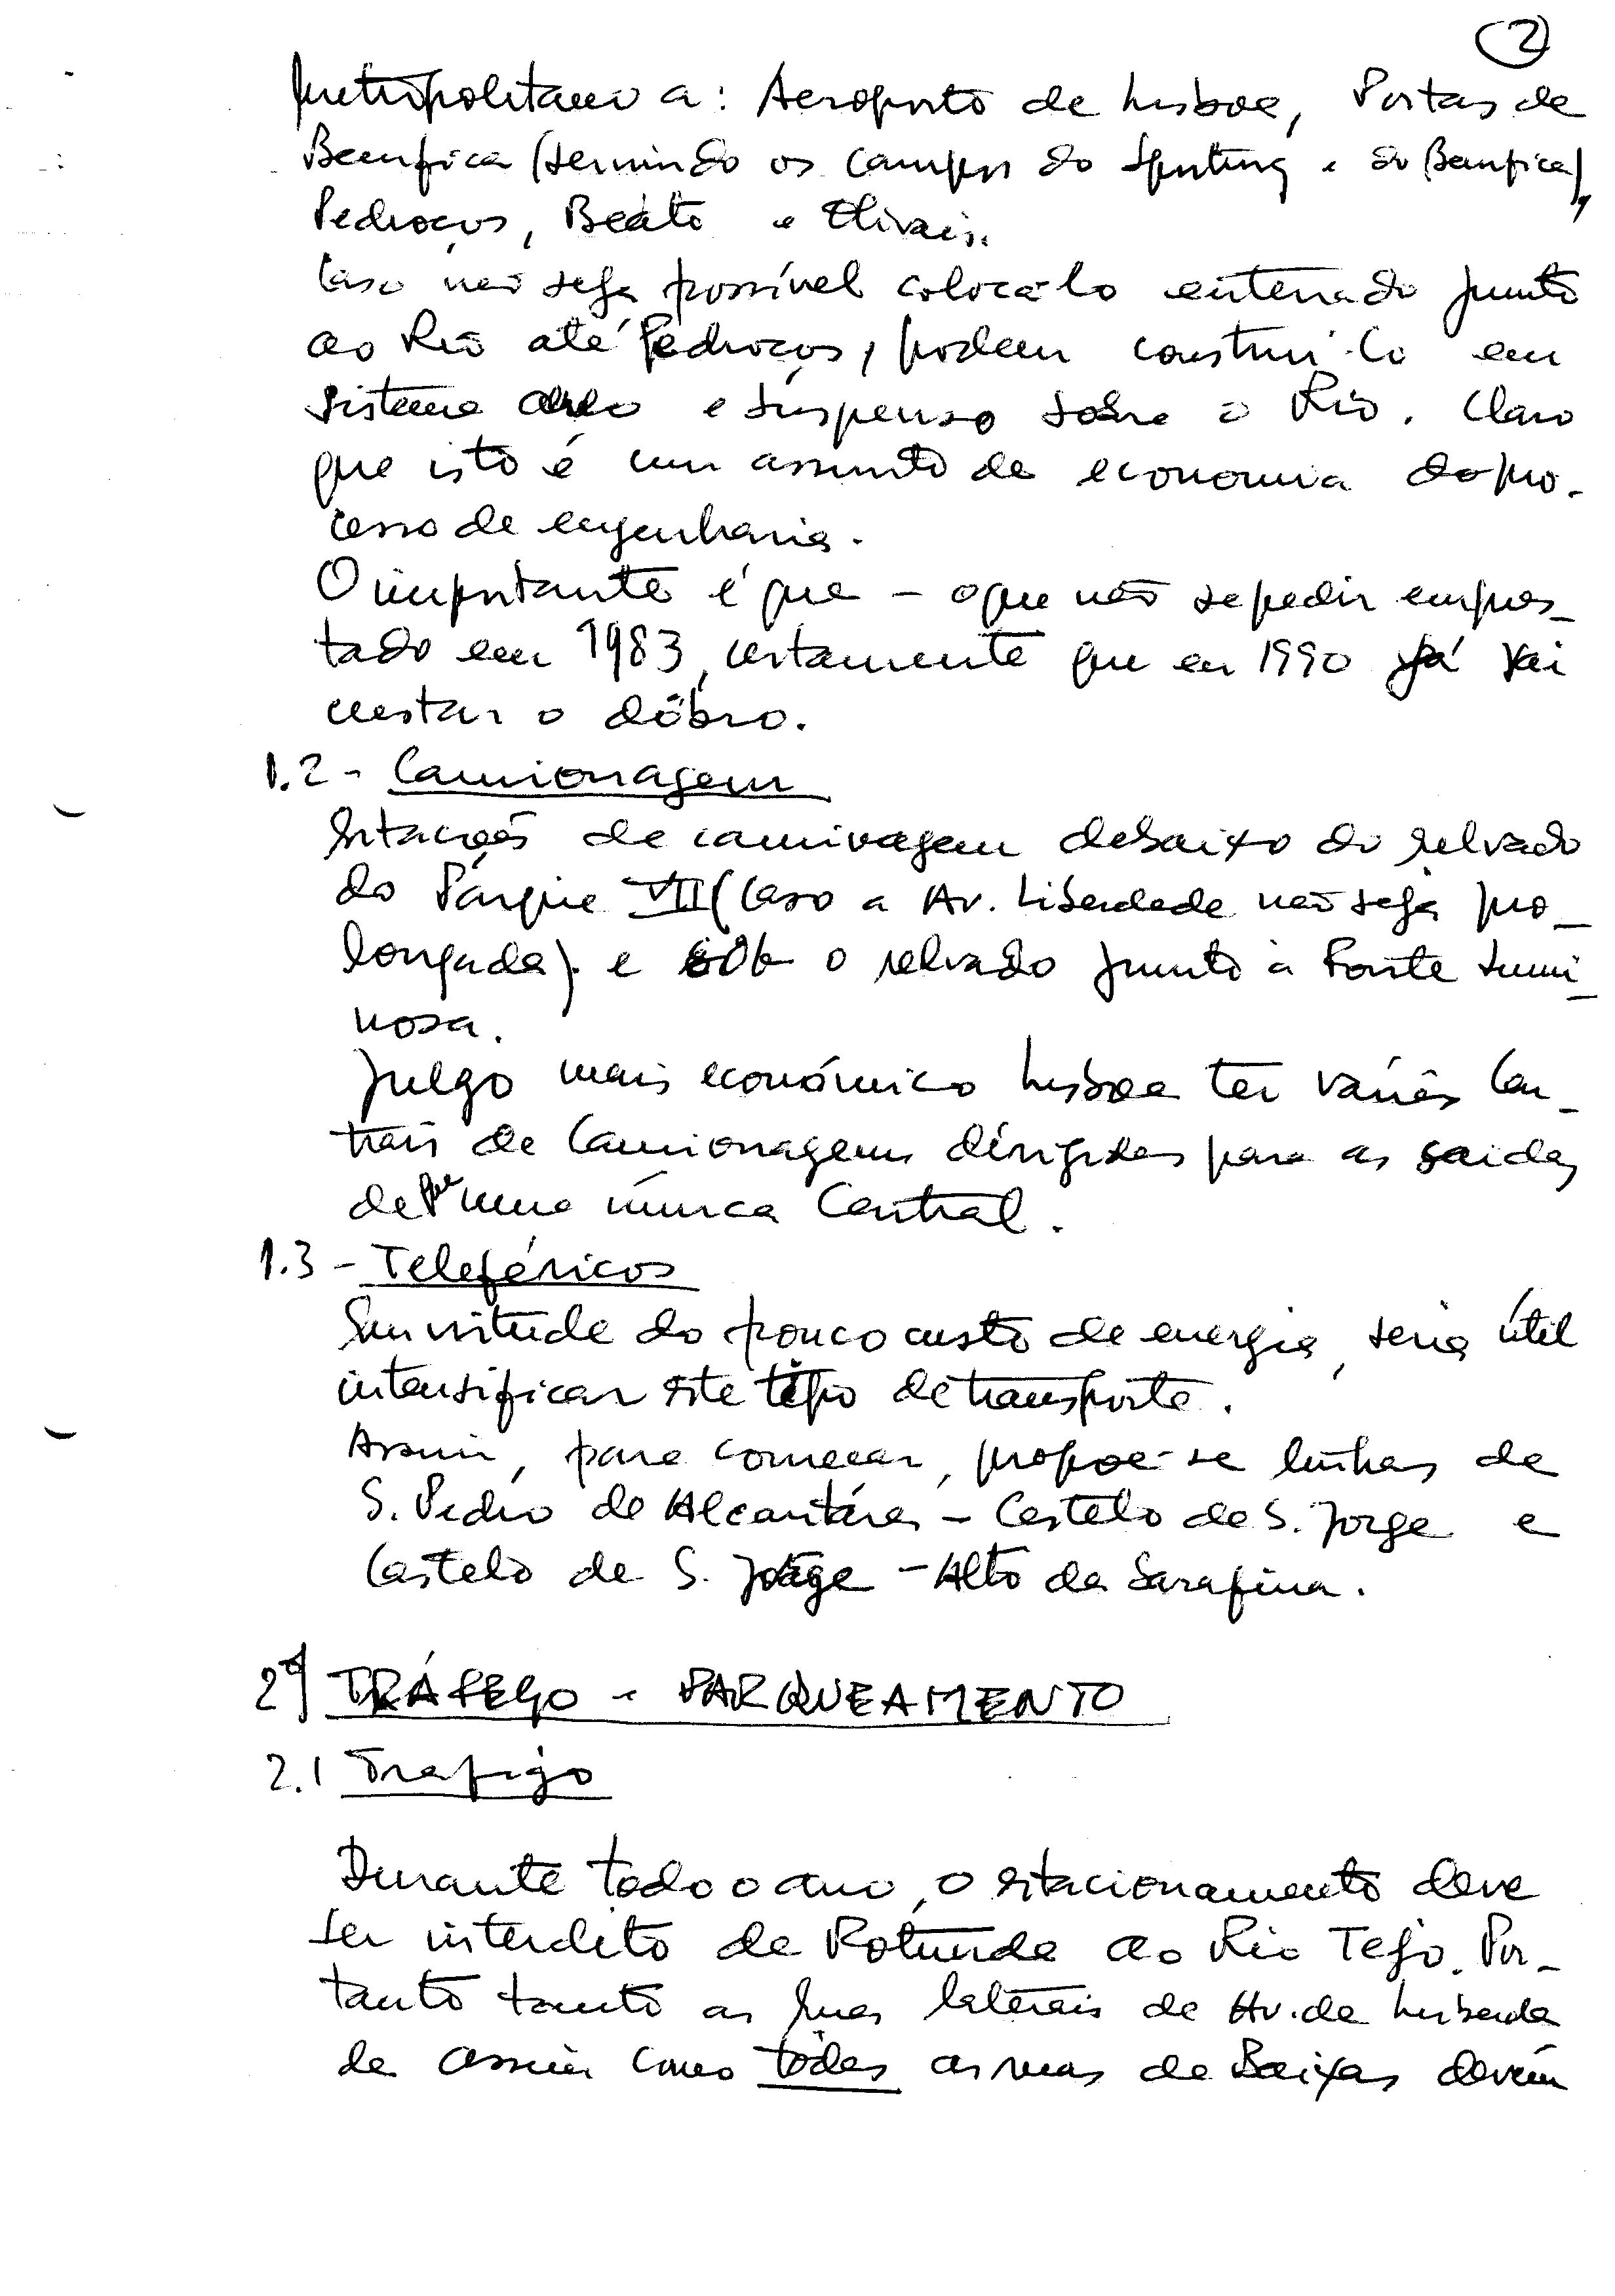 2
Metropolitano a: Aeroporto de Lisboa, Portas de
Bemfica (servindo os campos do Sporting e do Bemfica),
Pedroços, Beato e Olivais.
Caso não seja possível colocá-lo enterrado junto
ao Rio até Pedroços, podem construi-lo em
sistema aéreo e suspenso sobre o Rio. Claro
que isto é um assunto de economia do pro-
cesso de engenharia.
O importante é que - o que não se pedir empres-
tado em 1983, certamente que em 1990 já vai
custar o dôbro.
1.2 - Camionagem
Estações de camionagem debaixo do relvado
do Parque VII (caso a Av. Liberdade não seja pro-
longada) e sob o relvado junto à Fonte Lumi-
nosa.
Julgo mais económico Lisboa ter várias Cen-
trais de Camionagem dirigidas para as saidas
de que uma única Central.
1.3 - Teleféricos
Em virtude do pouco custo de energia, seria útil
intensificar este tipo de transporte.
Assim, para começar, propoe-se linhas de
S. Pedro de Alcantára - Castelo de S. Jorge e
Castelo de S. Jorge - Alto da Sarafina.
2º) TRÁFEGO e PARQUEAMENTO
2.1 Trafigo
Durante todo o ano, o estacionamento deve
ser interdito da Rotunda ao Rio Tejo. Por-
tanto tanto as ruas laterais da Av. da Liberda
de assim como todas as ruas da Baixa, devem